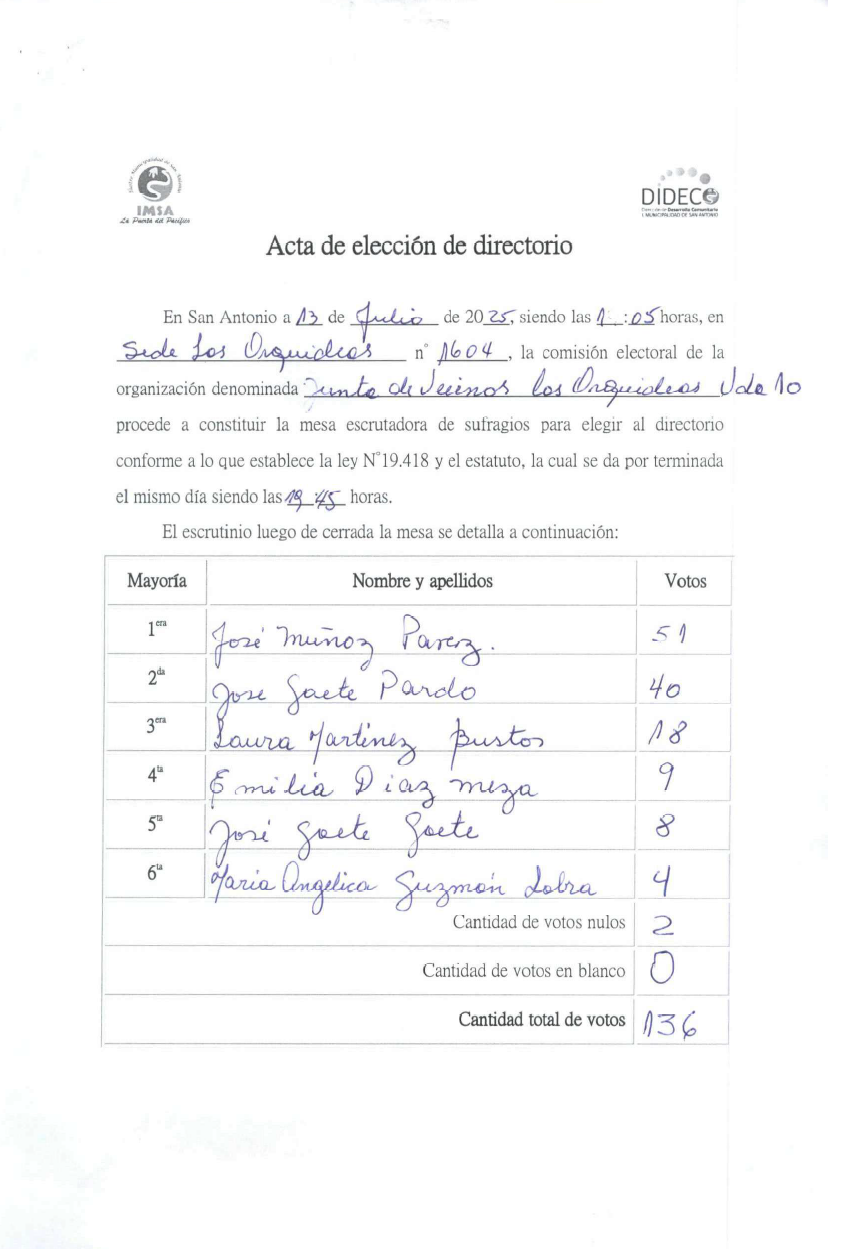 IMSA
La Puerta del Pacífico
DIDECO
Dirección de Desarrollo Comunitario
I. MUNICIPALIDAD DE SAN ANTONIO
Acta de elección de directorio
En San Antonio a 13 de Julio de 2025, siendo las 1 :05 horas, en
Sede Los Orquideas n° 1604, la comisión electoral de la
organización denominada Junta de Vecinos los Orquideas Vda 10
procede a constituir la mesa escrutadora de sufragios para elegir al directorio
conforme a lo que establece la ley N°19.418 y el estatuto, la cual se da por terminada
el mismo día siendo las 19 45 horas.
El escrutinio luego de cerrada la mesa se detalla a continuación:
Mayoría Nombre y apellidos Votos
1era José Muñoz Parez. 51
2da Jose Gaete Pardo 40
3era Laura Martinez Bustos 18
4ta Emilia Diaz meza 9
5ta José Gaete Gaete 8
6ta Maria Angelica Guzmán 4
Cantidad de votos nulos 2
Cantidad de votos en blanco 0
Cantidad total de votos 136